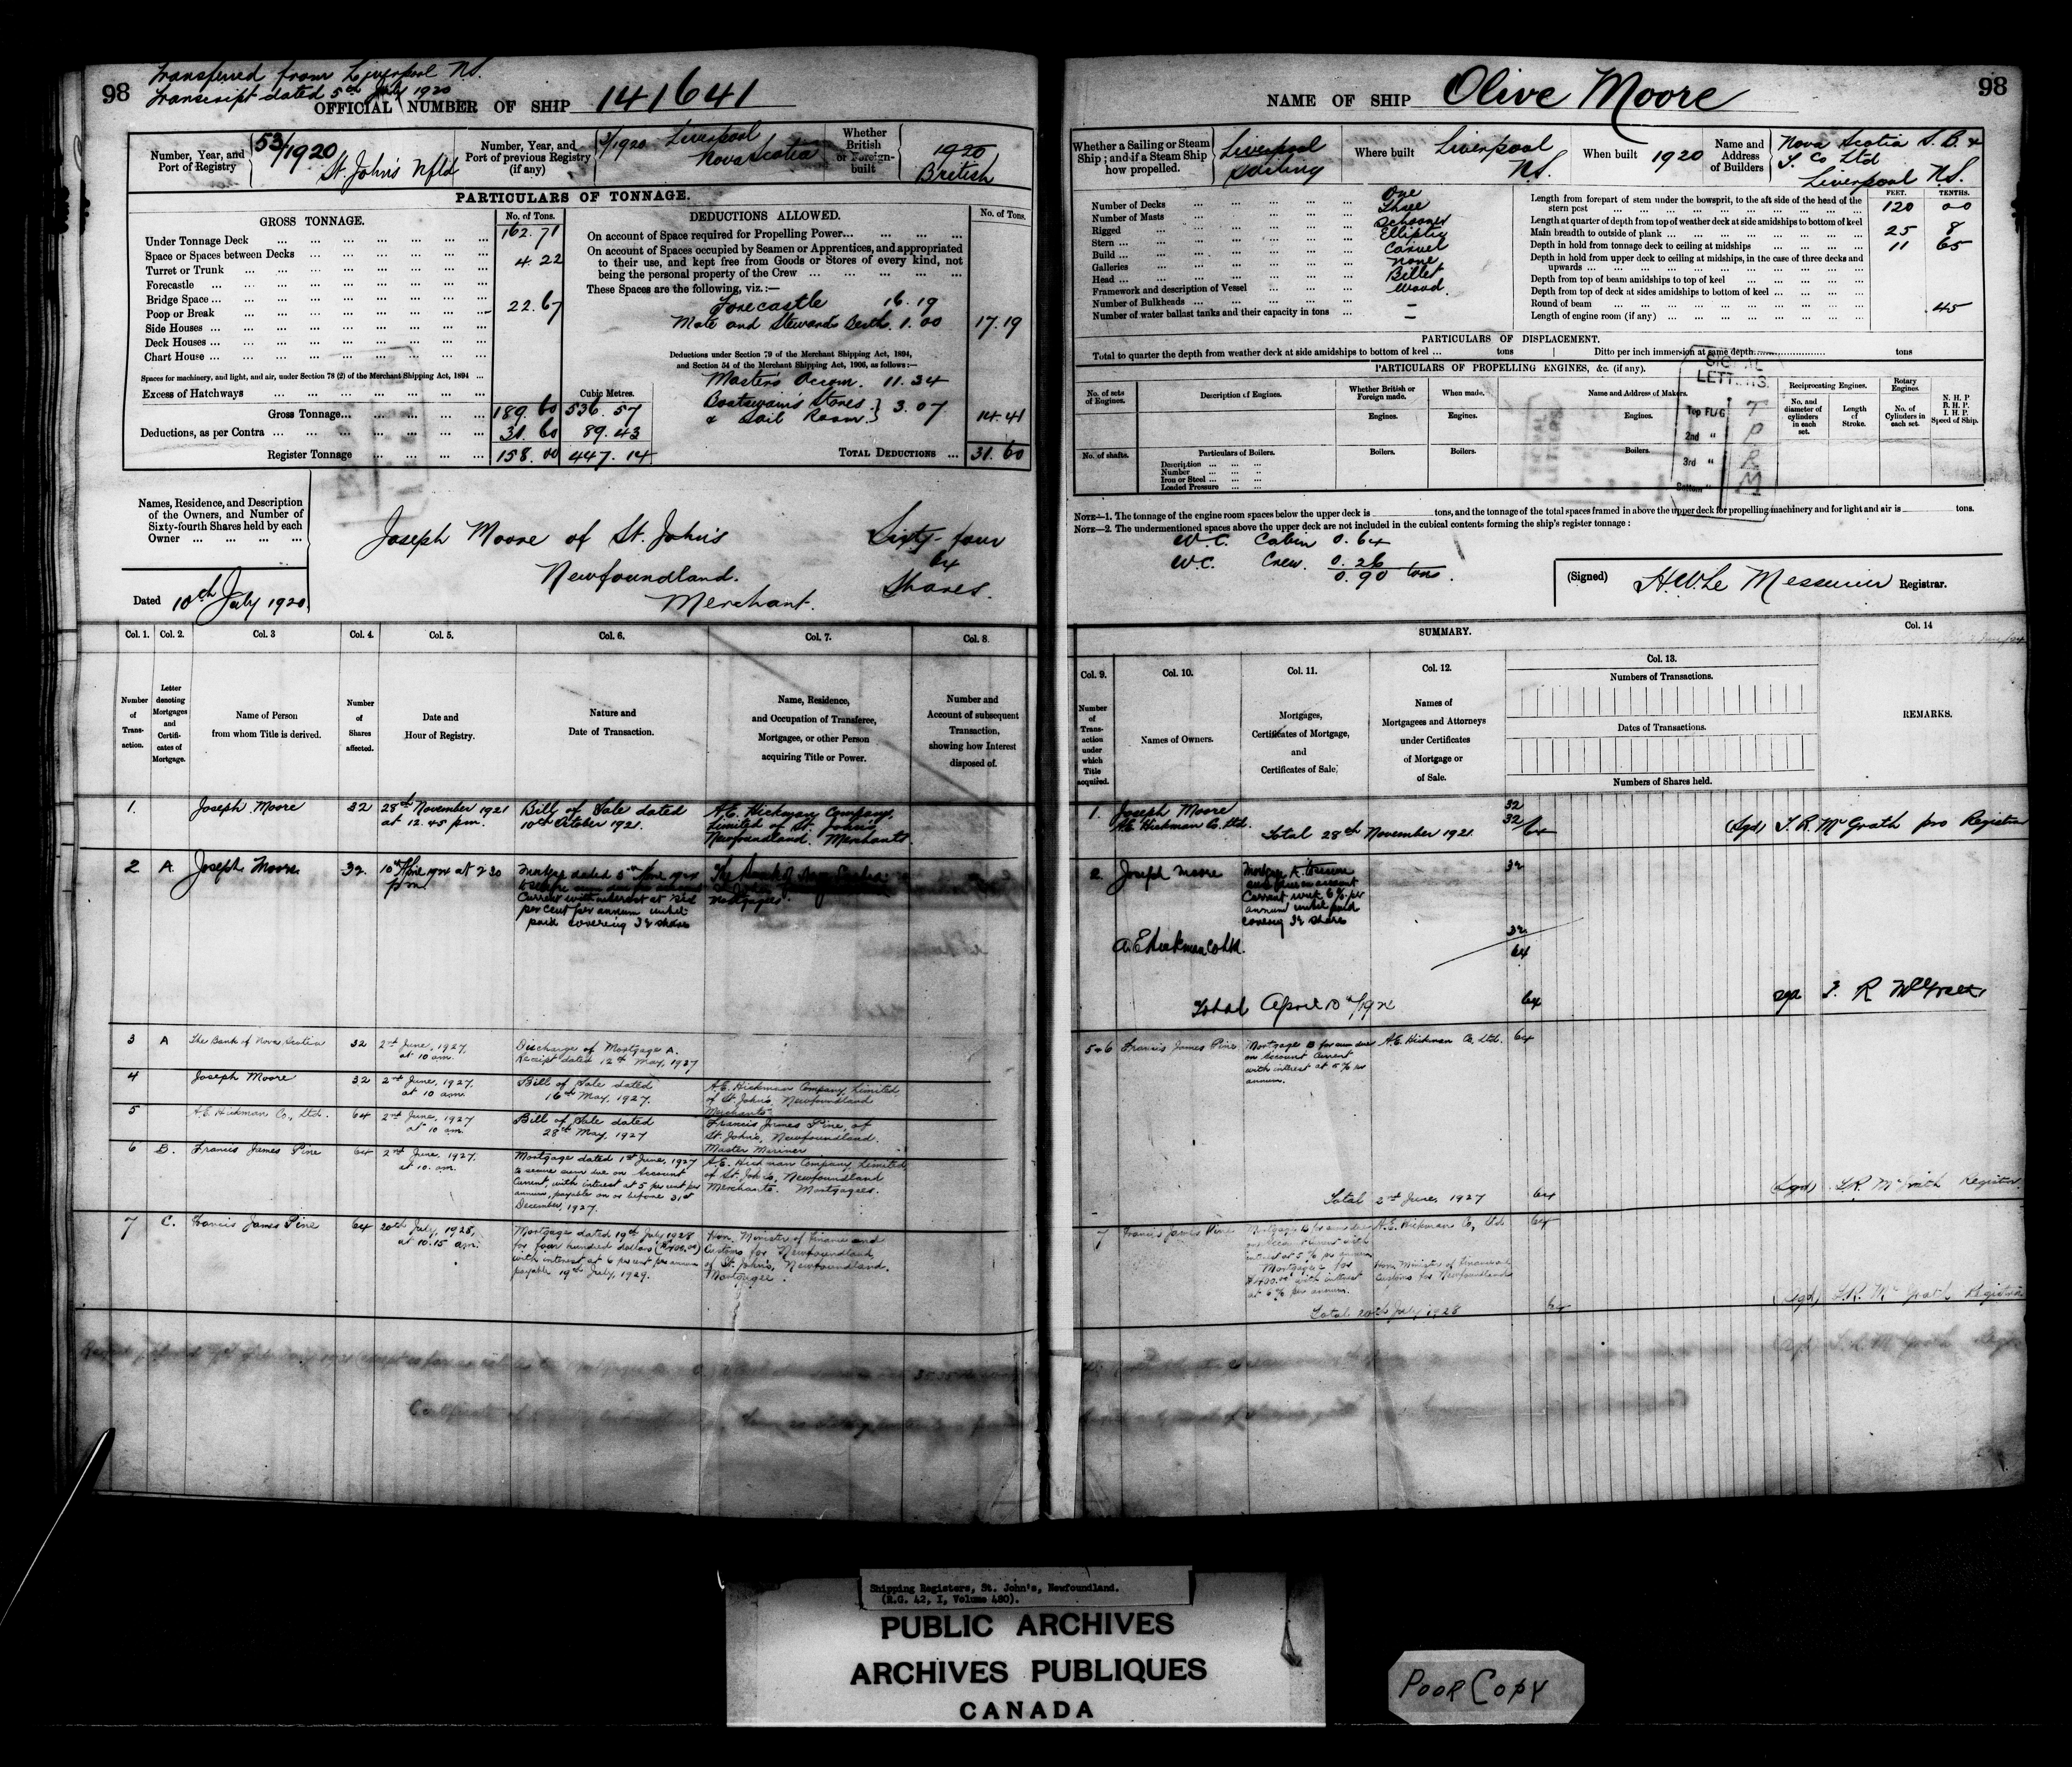 98
Transferred from Liverpool N.S.
Transcript dated 5th July 1920
OFFICIAL NUMBER OF SHIP 141641
Number, Year, and Port of Registry
53/1920 St. John's Nfld
Number, Year, and Port of previous Registry (if any)
3/1920 Liverpool Nova Scotia
Whether British or Foreign-built
1920 British
PARTICULARS OF TONNAGE.
GROSS TONNAGE.
No. of Tons.
Under Tonnage Deck ... 162.71
Space or Spaces between Decks ...
Turret or Trunk ... 4.22
Forecastle ...
Bridge Space ...
Poop or Break ... 22.67
Side Houses ...
Deck Houses ...
Chart House ...
Spaces for machinery, and light, and air, under Section 78 (2) of the Merchant Shipping Act, 1894 ...
Excess of Hatchways ...
Cubic Metres.
Gross Tonnage... 189.60 536.57
Deductions, as per Contra ... 31.60 89.43
Register Tonnage 158.00 447.14
DEDUCTIONS ALLOWED.
No. of Tons.
On account of Space required for Propelling Power...
On account of Spaces occupied by Seamen or Apprentices, and appropriated
to their use, and kept free from Goods or Stores of every kind, not
being the personal property of the Crew ...
These Spaces are the following, viz.:—
Forecastle 16.19
Mate and Stewards Berth. 1.00 17.19
Deductions under Section 79 of the Merchant Shipping Act, 1894,
and Section 54 of the Merchant Shipping Act, 1906, as follows:—
Masters Accom. 11.34
Boatswain's Stores
& Sail Room } 3.07 14.41
TOTAL DEDUCTIONS ... 31.60
Names, Residence, and Description
of the Owners, and Number of
Sixty-fourth Shares held by each
Owner ...
Joseph Moore of St. John's
Newfoundland.
Merchant.
Sixty-four
64
Shares.
Dated 10th July 1920
Col. 1. Col. 2. Col. 3 Col. 4. Col. 5. Col. 6. Col. 7. Col. 8.
Number of Transaction.
Letter denoting Mortgages and Certificates of Mortgage.
Name of Person from whom Title is derived.
Number of Shares affected.
Date and Hour of Registry.
Nature and Date of Transaction.
Name, Residence, and Occupation of Transferee, Mortgagee, or other Person acquiring Title or Power.
Number and Account of subsequent Transaction, showing how Interest disposed of.
1. Joseph Moore 32 28th November 1921 at 12.45 p.m.
Bill of Sale dated 10th October 1921.
A.E. Hickman Company, Limited of St. John's Newfoundland. Merchants.
2 A. Joseph Moore 32. 10th April at 2 30 pm
per cent per annum until
paid covering 32 shares
Mortgagees.
3 A The Bank of Nova Scotia 32 2nd June, 1927, at 10 am.
Discharge of Mortgage A.
Receipt dated 12th May, 1927
4 Joseph Moore 32 2nd June, 1927, at 10 am.
Bill of Sale dated 16th May, 1927.
A.E. Hickman Company, Limited
of St. John's, Newfoundland
Merchants
5 A.E. Hickman Co., Ltd. 64 2nd June, 1927 at 10 am.
Bill of Sale dated 28th May, 1927
Francis James Pine, of
St. John's, Newfoundland.
Master Mariner
6 B. Francis James Pine 64 2nd June, 1927, at 10. am.
Mortgage dated 1st June, 1927
to secure sum due on Account
Current, with interest at 5 per cent per
annum, payable on or before 31st
December, 1927.
A.E. Hickman Company, Limited
of St. John's, Newfoundland
Merchants. Mortgagees.
7 C. Francis James Pine 64 20th July, 1928, at 10.15 am.
Mortgage dated 19th July 1928
for four hundred dollars ($400.00)
with interest at 6 per cent per annum
payable 19th July, 1929.
Hon. Ministry of Finance and
Customs for Newfoundland,
of St. John's, Newfoundland.
Mortgagee.
98
NAME OF SHIP Olive Moore
Whether a Sailing or Steam Ship; and if a Steam Ship how propelled.
Liverpool
Sailing
Where built Liverpool N.S.
When built 1920
Name and Address of Builders
Nova Scotia S.B. &
T. Co Ltd
Liverpool N.S.
Number of Decks ... One
Number of Masts ... Three
Rigged ... Schooner
Stern ... Elliptic
Build ... Carvel
Galleries ... none
Head ... Billet
Framework and description of Vessel ... Wood.
Number of Bulkheads ... —
Number of water ballast tanks and their capacity in tons ... —
FEET. TENTHS.
Length from forepart of stem under the bowsprit, to the aft side of the head of the
stern post ... 120 00
Length at quarter of depth from top of weather deck at side amidships to bottom of keel
Main breadth to outside of plank ... 25 8
Depth in hold from tonnage deck to ceiling at midships ... 11 65
Depth in hold from upper deck to ceiling at midships, in the case of three decks and
upwards ...
Depth from top of beam amidships to top of keel ...
Depth from top of deck at sides amidships to bottom of keel ...
Round of beam ... .45
Length of engine room (if any) ...
PARTICULARS OF DISPLACEMENT.
Total to quarter the depth from weather deck at side amidships to bottom of keel ... tons
Ditto per inch immersion at same depth ... tons
PARTICULARS OF PROPELLING ENGINES, &c. (if any).
No. of sets of Engines.
Description of Engines.
Whether British or Foreign made.
When made.
Name and Address of Makers.
Reciprocating Engines.
Rotary Engines.
N. H. P
B. H. P.
I. H. P.
Speed of Ship.
Engines. Engines. Engines.
No. and diameter of cylinders in each set.
Length of Stroke.
No. of Cylinders in each set.
No. of shafts.
Particulars of Boilers.
Boilers. Boilers. Boilers.
Description ...
Number ...
Iron or Steel ...
Loaded Pressure ...
SIGNAL LETTERS.
Top FLUG T
2nd " P
3rd " R
Bottom " M
NOTE—1. The tonnage of the engine room spaces below the upper deck is tons, and the tonnage of the total spaces framed in above the upper deck for propelling machinery and for light and air is tons.
NOTE—2. The undermentioned spaces above the upper deck are not included in the cubical contents forming the ship's register tonnage:
W.C. Cabin 0.64
W.C. Crew. 0.26
0.90 tons.
(Signed) H.W. Le Messurier Registrar.
SUMMARY.
Col. 9. Col. 10. Col. 11. Col. 12. Col. 13. Col. 14
Number of Transaction under which Title acquired.
Names of Owners.
Mortgages, Certificates of Mortgage, and Certificates of Sale.
Names of Mortgagees and Attorneys under Certificates of Mortgage or of Sale.
Numbers of Transactions.
Dates of Transactions.
Numbers of Shares held.
REMARKS.
1. Joseph Moore 32
A.E. Hickman Co. Ltd. 32/64
Total 28th November 1921
(Sgd) T.R. McGrath pro Registrar
2. Joseph Moore 32
Mortgage A. to secure
sum due on account
Current with 6% per
annum until paid
covering 32 shares
A.E. Hickman Co Ltd. 32
64
Total April 10th 64
sgd T. R McGrath
5&6 Francis James Pine
Mortgage B for sum due
on Account Current
with interest at 5% per
annum.
A.E. Hickman Co, Ltd. 64
Total 2nd June, 1927 64
(Sgd) T.R. McGrath Registrar.
7 Francis James Pine
Mortgage B for sum due
on Account Current with
interest at 5% per annum
Mortgage C for
$400.00 with interest
at 6% per annum.
A.E. Hickman Co, Ltd 64
Hon. Minister of Finance and
Customs for Newfoundland
Total 20th July, 1928 64
(sgd) T.R. McGrath Registrar
(sgd) T.R. McGrath
Shipping Registers, St. John's, Newfoundland.
(R.G. 42, I, Volume 480).
PUBLIC ARCHIVES
ARCHIVES PUBLIQUES
CANADA
POOR COPY